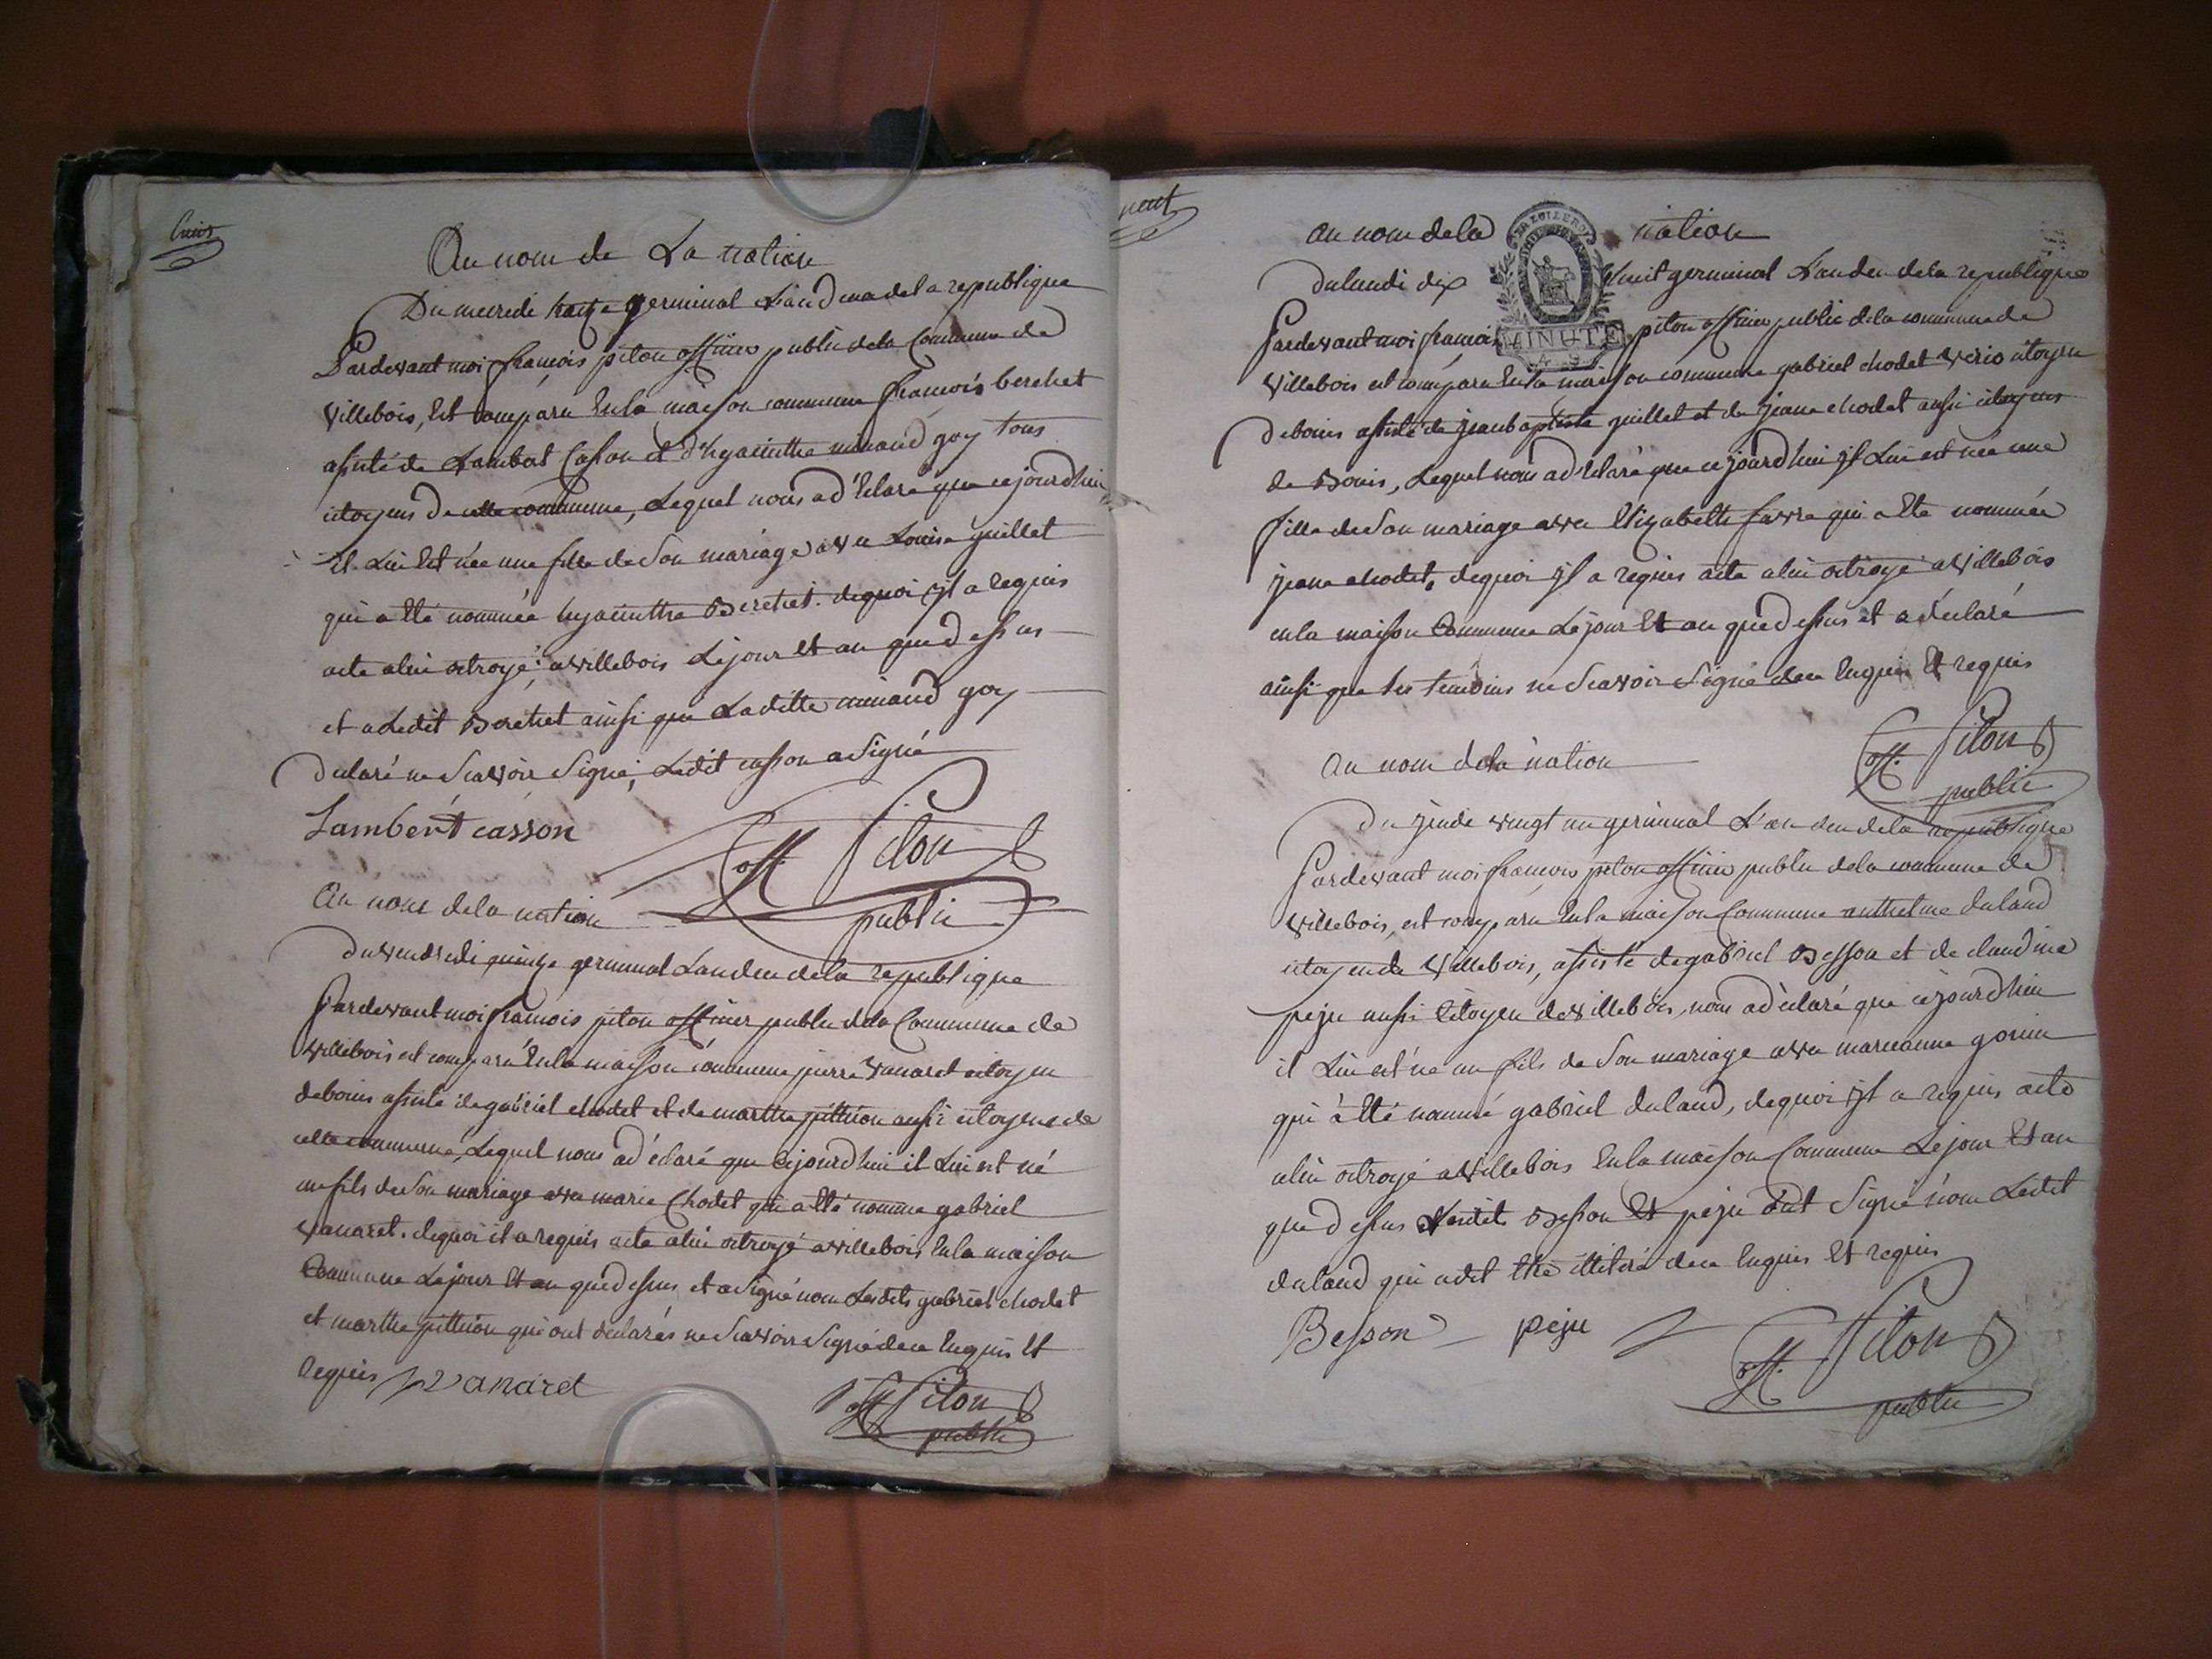 huit
Au nom de La nation
Du mecredi treize germinal L'an deux de la republique
Pardevant moi françois piton officier public de la Commune de
villebois, Est comparu En la maison commune françois berchet
assisté de Lambert Casson et d'hyacinthe minand goy tous
citoyens de cette commune, Lequel nous a déclaré que cejourdhui
il Lui Est née une fille de Son mariage avec Louise guillet
qui a Eté nommée hyacinthe Berchet. dequoi jl a Requis
acte a lui octroyé; a villebois Le jour Et an que dessus
et a Ledit Berchet ainsi que Laditte minand goy
declaré ne Scavoir Signé, Ledit casson a Signé
Lambert casson
Piton
off.
public
Au nom de la nation
du vendredi quinze germinal L'an deu de la republique
Pardevant moi françois piton officier public de la Commune de
villebois est comparu En la maison commune pierre vanaret citoyen
de bouis assisté de gabriel chodet et de marthe pittion aussi citoyens de
cette commune, Lequel nous a déclaré que cejourdhui il Lui est né
un fils de Son mariage avec marie Chodet qui a Eté nommé gabriel
vanaret. dequoi il a requis acte a lui octroyé a villebois En la maison
Commune Le jour Et an que dessus et a Signé non Lesdits gabriel chodet
et marthe pittion qui ont declarés ne Scavoir Signé de ce Enquis Et
Requis Vanaret
off Piton
public
neuf
au nom de la nation
MINUTE
du lundi dix huit germinal L'an deu de la republique
Pardevant moi françois piton officier public de la commune de
villebois est comparu En la maison commune gabriel chodet citoyen
de bouis assisté de jean baptiste guillet et de jeane chodet aussi citoyens
de Bouis, Lequel nous a déclaré que cejourdhui jl Lui est née une
fille de Son mariage avec Elizabeth favre qui a Eté nommée
jeane chodet, dequoi jl a requis acte a lui octroyé a villebois
en la maison Commune Le jour Et an que dessus et a déclaré
ainsi que Ses temoins ne Scavoir Signé de ce Enquis Et requis
off. Piton
public
au nom de la nation
Du jeude vingt un germinal L'an deu de la republique
Pardevant moi françois piton officier public de la commune de
villebois, est comparu En la maison Commune anthelme duland
citoyen de villebois, assisté de gabriel Besson et de claudine
peju aussi Citoyen de villebois, nous a déclaré que cejourdhui
il Lui est né un fils de Son mariage avec marieanne gonin
qui a Eté nommé gabriel duland, dequoi jl a requis acte
a lui octroyé a villebois En la maison Commune Le jour Et an
que dessus Lesdits Besson Et peju ont Signé non Ledit
duland qui a dit Etre illiteré de ce Enquis Et requis
Besson peju
off. Piton
public